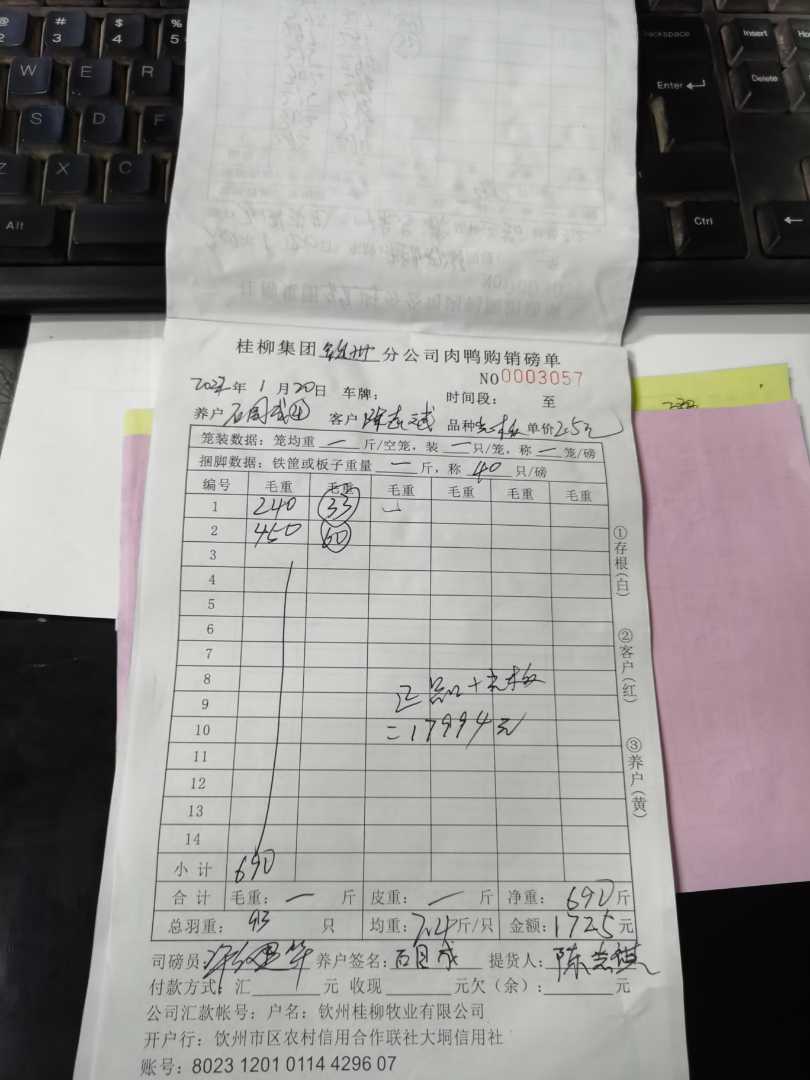 桂柳集团 钦州 分公司肉鸭购销磅单
NO 0003057
年 1 月 20 日 车牌: 时间段: 至
养户 客户 品种 单价 2.5元
笼装数据: 笼均重 一 斤/空笼, 装 一 只/笼, 称 一 笼/磅
捆脚数据: 铁筐或板子重量 一 斤, 称 40 只/磅
编号 毛重 毛重 毛重 毛重 毛重 毛重
1 240 33
2 450 60
3
4
5
6
7
8
正品+光板
9
10
=17994元
11
12
13
14
小计 690
合计 毛重: 一 斤 皮重: 一 斤 净重: 690 斤
总羽重: 93 只 均重: 7.4 斤/只 金额: 1725 元
司磅员: 养户签名: 提货人:
付款方式: 汇 元 收现 元欠(余): 元
公司汇款帐号: 户名: 钦州桂柳牧业有限公司
开户行: 钦州市区农村信用合作联社大垌信用社
账号: 8023 1201 0114 4296 07
①存根(白)
②客户(红)
③养户(黄)
@ 2
# 3
$ 4
% 5
W E R
S D F
Z X C
Alt
Backspace
Insert
Enter
Delete
Ctrl